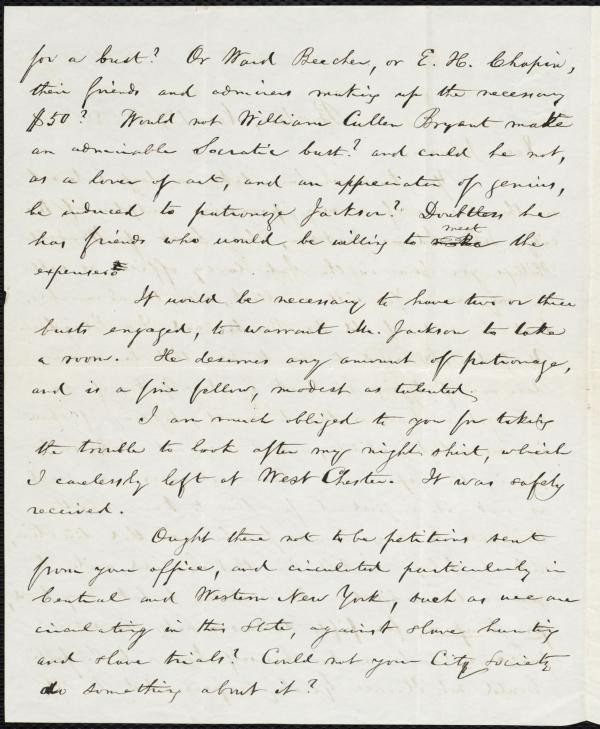 for a bust? Or Ward Beecher, or E. H. Chapin,
their friends and admirers making up the necessary
$50? Would not William Cullen Bryant make
an admirable Socratic bust? and could he not,
as a lover of art, and an appreciator of genius,
be induced to patronize Jackson? Doubtless he
has friends who would be willing to meet the
expenses.
It would be necessary to have two or three
busts engaged, to warrant Mr. Jackson to take
a room. He deserves any amount of patronage,
and is a fine fellow, modest as talented.
I am much obliged to you for taking
the trouble to look after my night shirt, which
I carelessly left at West Chester. It was safely
received.
Ought there not to be petitions sent
from your office, and circulated particularly in
Central and Western New York, such as we are
circulating in this State, against slave hunting
and slave trials? Could not your City Society
do something about it?